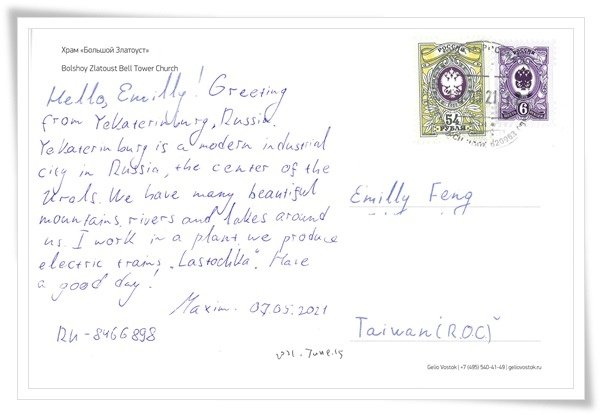 Храм «Большой Златоуст»
Bolshoy Zlatoust Bell Tower Church
Hello, Emilly! Greeting
from Yekaterinburg, Russia.
Yekaterinburg is a modern industrial
city in Russia, the center of the
Urals. We have many beautiful
mountains, rivers and lakes around
us. I work in a plant, we produce
electric trains „Lastochka“. Have
a good day!
Maxim. 07.05.2021
RU-8466898
РОССИЯ
54
РУБЛИ
РОССИЯ
6
Emilly Feng
Taiwan (R.O.C.)
2021. June.15
Gelio Vostok | +7 (495) 540-41-49 | geliovostok.ru